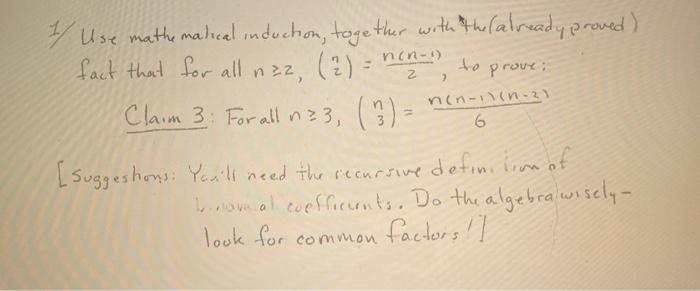 1/ Use mathematical induction, together with the (already proved)
fact that for all n≥2, (n 2) = n(n-1)/2, to prove:
Claim 3: For all n≥3, (n 3) = n(n-1)(n-2)/6
[Suggestions: You'll need the recursive definition of
binomial coefficients. Do the algebra wisely -
look for common factors!]